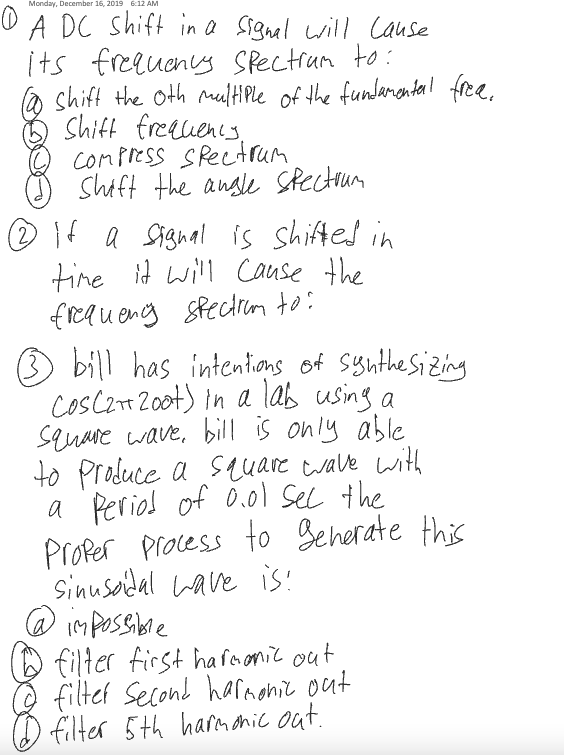 Monday, December 16, 2019 6:12 AM
① A DC shift in a signal will cause
its frequency spectrum to:
ⓐ shift the 0th multiple of the fundamental freq.
ⓑ shift frequency
ⓒ compress spectrum
ⓓ shift the angle spectrum
② if a signal is shifted in
time it will cause the
frequency spectrum to:
③ bill has intentions of synthesizing
cos(2π200t) in a lab using a
square wave. bill is only able
to produce a square wave with
a period of 0.01 sec the
proper process to generate this
sinusoidal wave is:
ⓐ impossible
ⓑ filter first harmonic out
ⓒ filter second harmonic out
ⓓ filter 5th harmonic out.